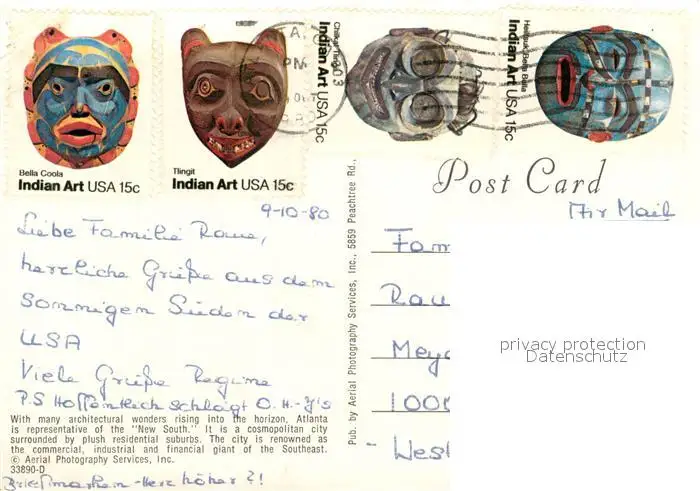 Bella Coola
Indian Art USA 15c
Tlingit
Indian Art USA 15c
Chilkat Tlingit
Indian Art USA 15c
Heiltsuk, Bella Bella
Indian Art USA 15c
Post Card
Air Mail
9-10-80
Liebe Familie
herzliche Grüße aus dem
Sonnigen Süden der
USA
Viele Grüße Regine
P.S Hoffentlich schlägt O. H.
With many architectural wonders rising into the horizon, Atlanta
is representative of the "New South." It is a cosmopolitan city
surrounded by plush residential suburbs. The city is renowned as
the commercial, industrial and financial giant of the Southeast.
© Aerial Photography Services, Inc.
33890-D
Briefmarken-Herz höher?!
Pub. by Aerial Photography Services, Inc., 5859 Peachtree Rd.,
Fam
Rau
Mey
100
- West
privacy protection
Datenschutz